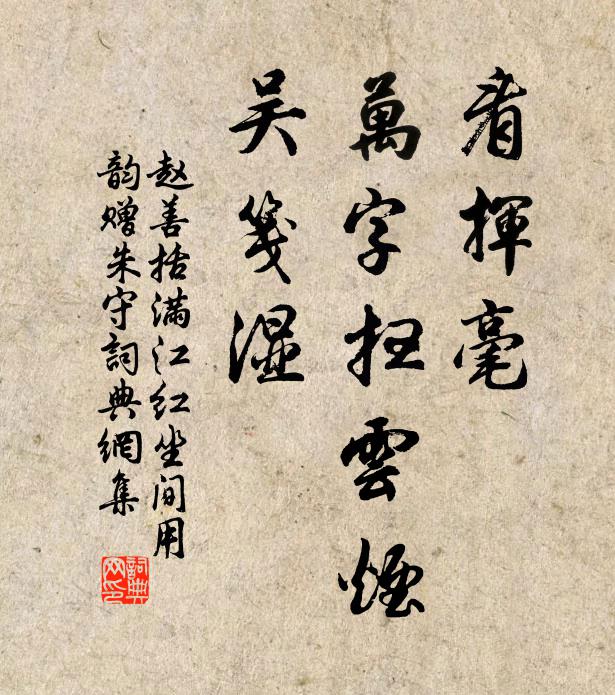 看揮毫
萬字掃雲煙
吴箋濕
赵善括满江红坐间用
韵赠朱守詞典網集
詞典网印